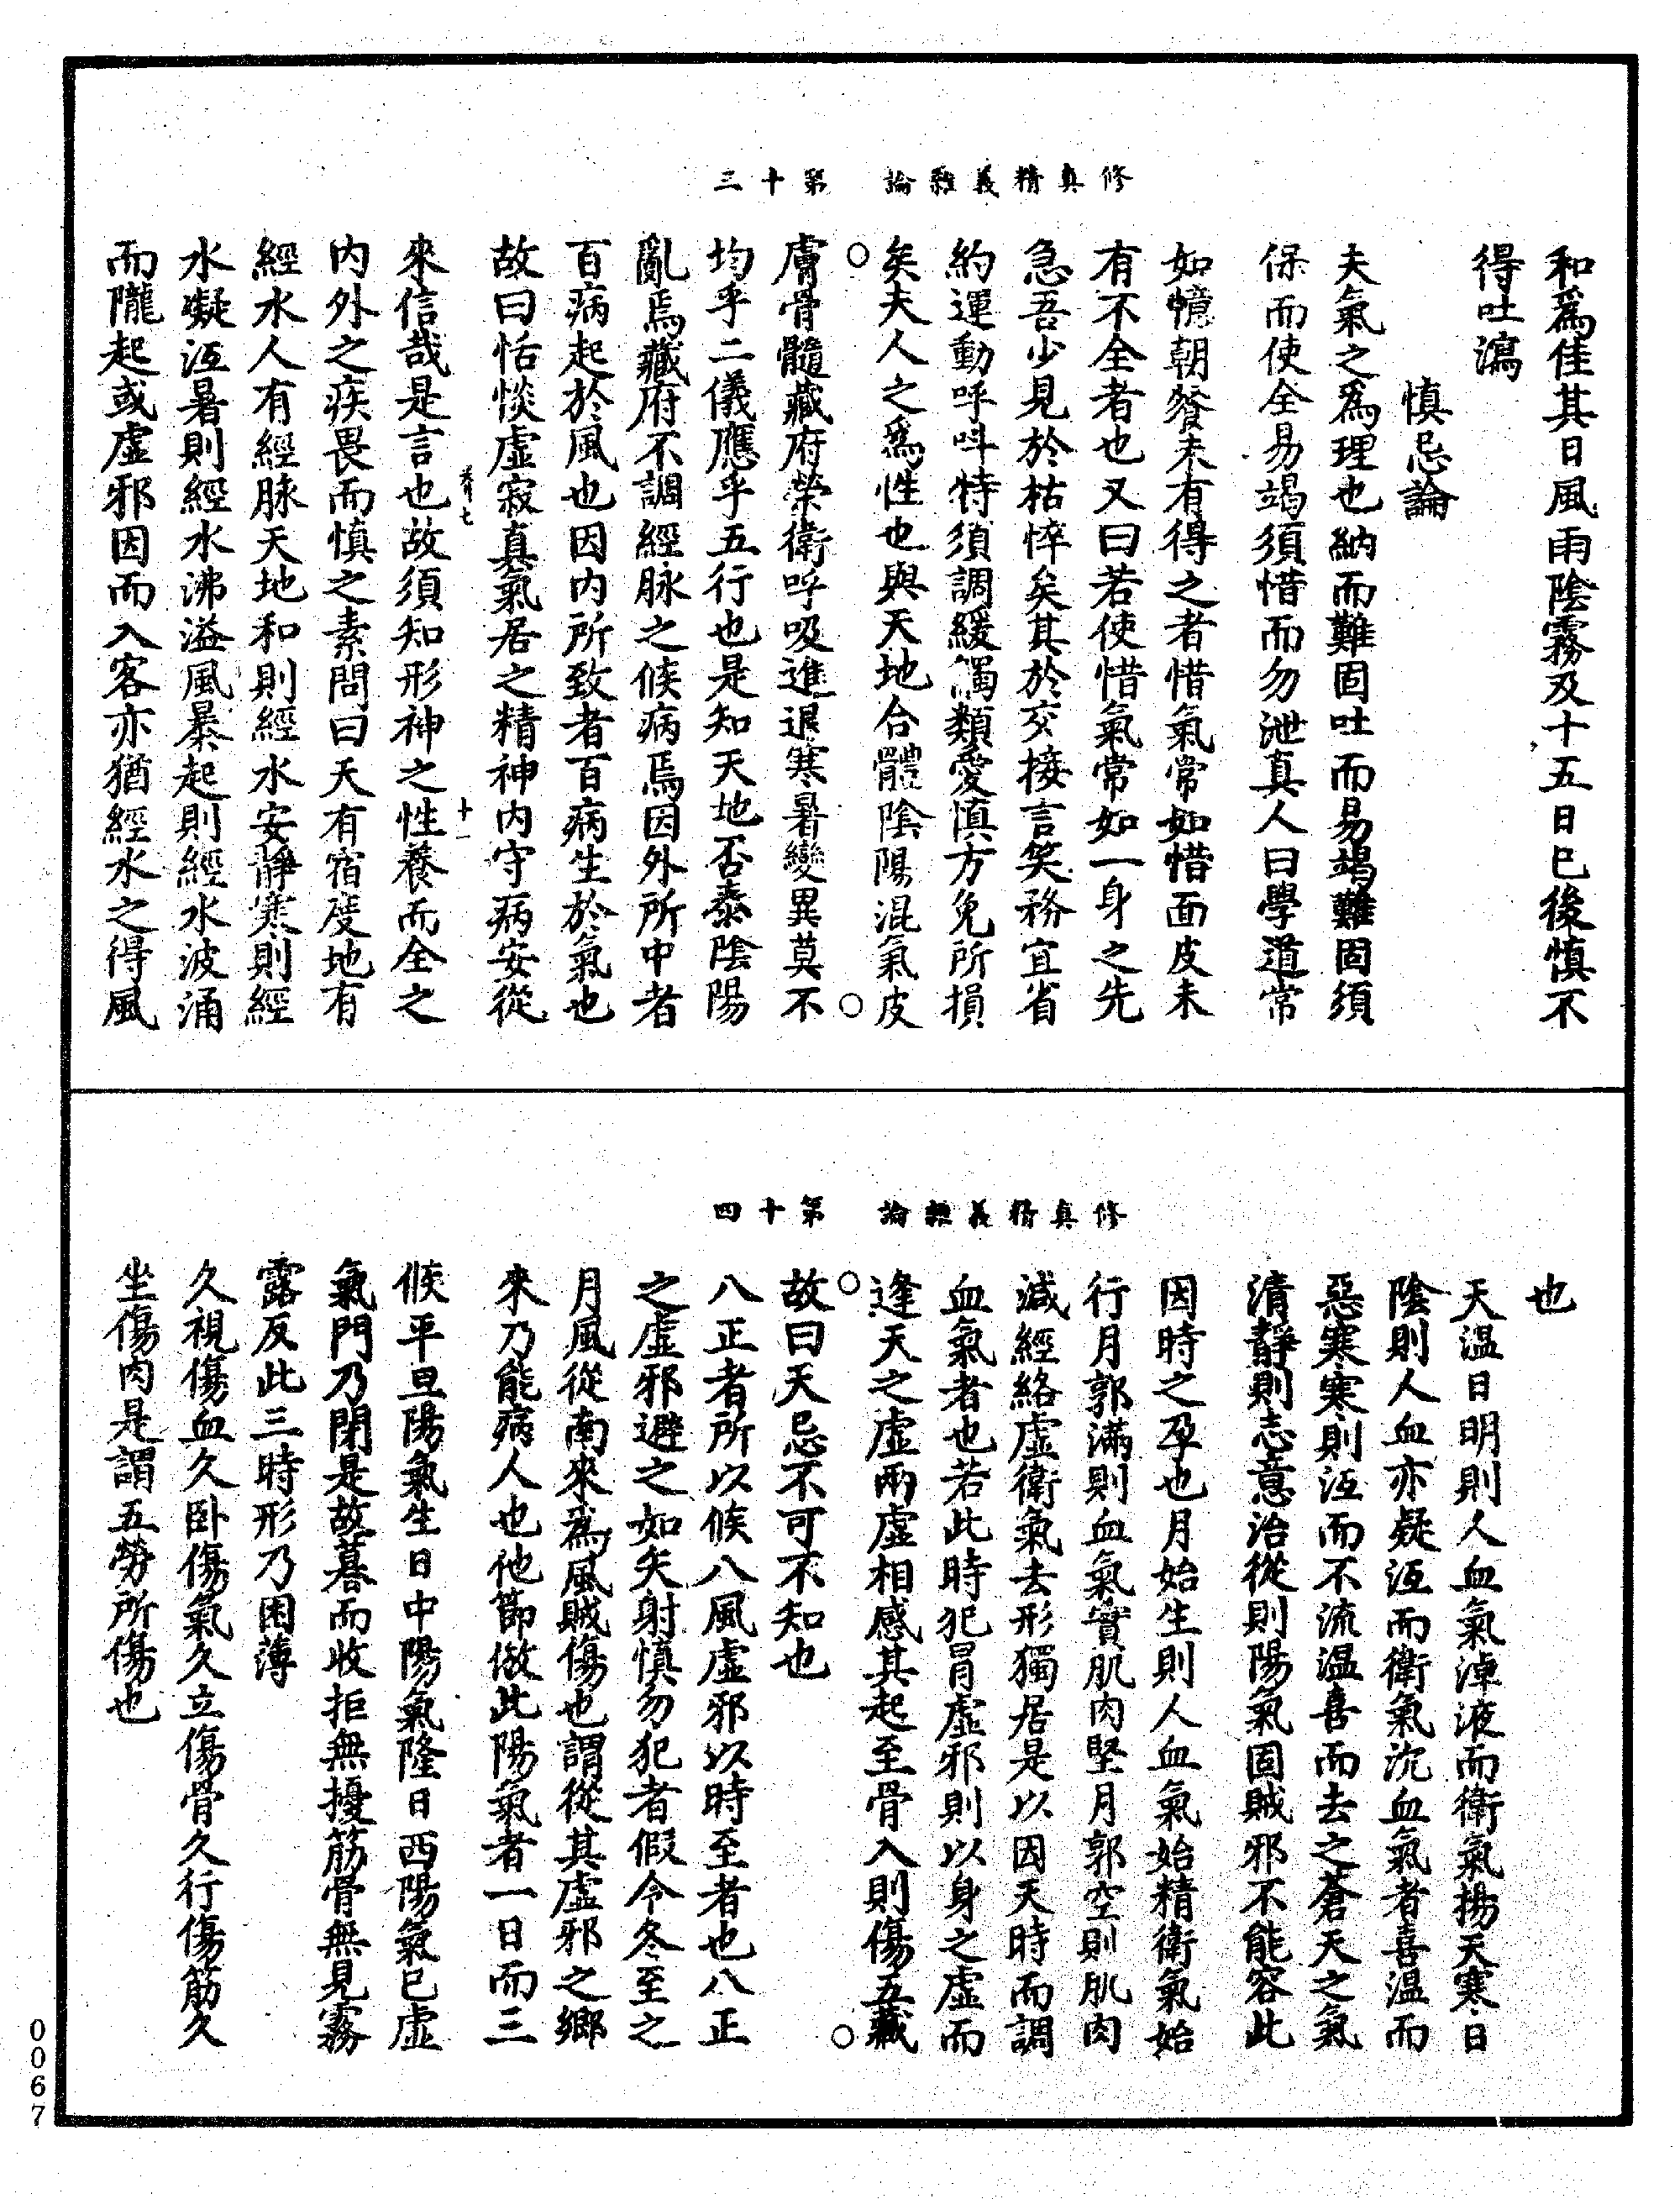 修真精義雜論　第十三
和爲佳其日風雨陰霧及十五日已後慎不
得吐瀉
慎忌論
夫氣之爲理也納而難固吐而易竭難固須
保而使全易竭須惜而勿泄真人曰學道常
如憶朝飡未有得之者惜氣常如惜面皮未
有不全者也又曰若使惜氣常如一身之先
急吾少見於枯悴矣其於交接言笑務宜省
約運動呼叫特須調緩觸類愛慎方免所損
矣夫人之爲性也與天地合體陰陽混氣皮
膚骨髓藏府榮衛呼吸進退寒暑變異莫不
均乎二儀應乎五行也是知天地否泰陰陽
亂焉藏府不調經脉之候病焉因外所中者
百病起於風也因内所致者百病生於氣也
故曰恬惔虛寂真氣居之精神内守病安從
來信哉是言也故須知形神之性養而全之
十一
内外之疾畏而慎之素問曰天有宿度地有
經水人有經脉天地和則經水安靜寒則經
水凝沍暑則經水沸溢風暴起則經水波涌
而隴起或虛邪因而入客亦猶經水之得風
修真精義雜論　第十四
也
天温日明則人血氣淖液而衛氣揚天寒日
陰則人血亦凝沍而衛氣沉血氣者喜温而
惡寒寒則沍而不流温喜而去之蒼天之氣
清靜則志意治從則陽氣固賊邪不能容此
因時之孕也月始生則人血氣始精衛氣始
行月郭滿則血氣實肌肉堅月郭空則肌肉
減經絡虛衛氣去形獨居是以因天時而調
血氣者也若此時犯冒虛邪則以身之虛而
逢天之虛兩虛相感其起至骨入則傷五藏
故曰天忌不可不知也
八正者所以候八風虛邪以時至者也八正
之虛邪避之如矢射慎勿犯者假令冬至之
月風從南來爲風賊傷也謂從其虛邪之鄉
來乃能病人也他節倣此陽氣者一日而三
候平旦陽氣生日中陽氣隆日西陽氣已虛
氣門乃閉是故暮而收拒無擾筋骨無見霧
露反此三時形乃困薄
久視傷血久卧傷氣久立傷骨久行傷筋久
坐傷肉是謂五勞所傷也
0067